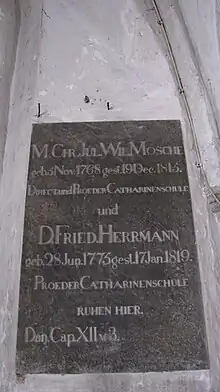 M. CHR. JUL. WIL. MOSCHE
geb. 3 Nov. 1768 gest. 19 Dec. 1815.
DIRECT. und PRO. ED ER CATHARINENSCHULE
und
D. FRIED. HERRMANN
geb. 28 Jun. 1775 gest. 17 Jan. 1819.
PRO. ED ER CATHARINENSCHULE
RUHEN HIER.
Dan. Cap. XII v. 3.